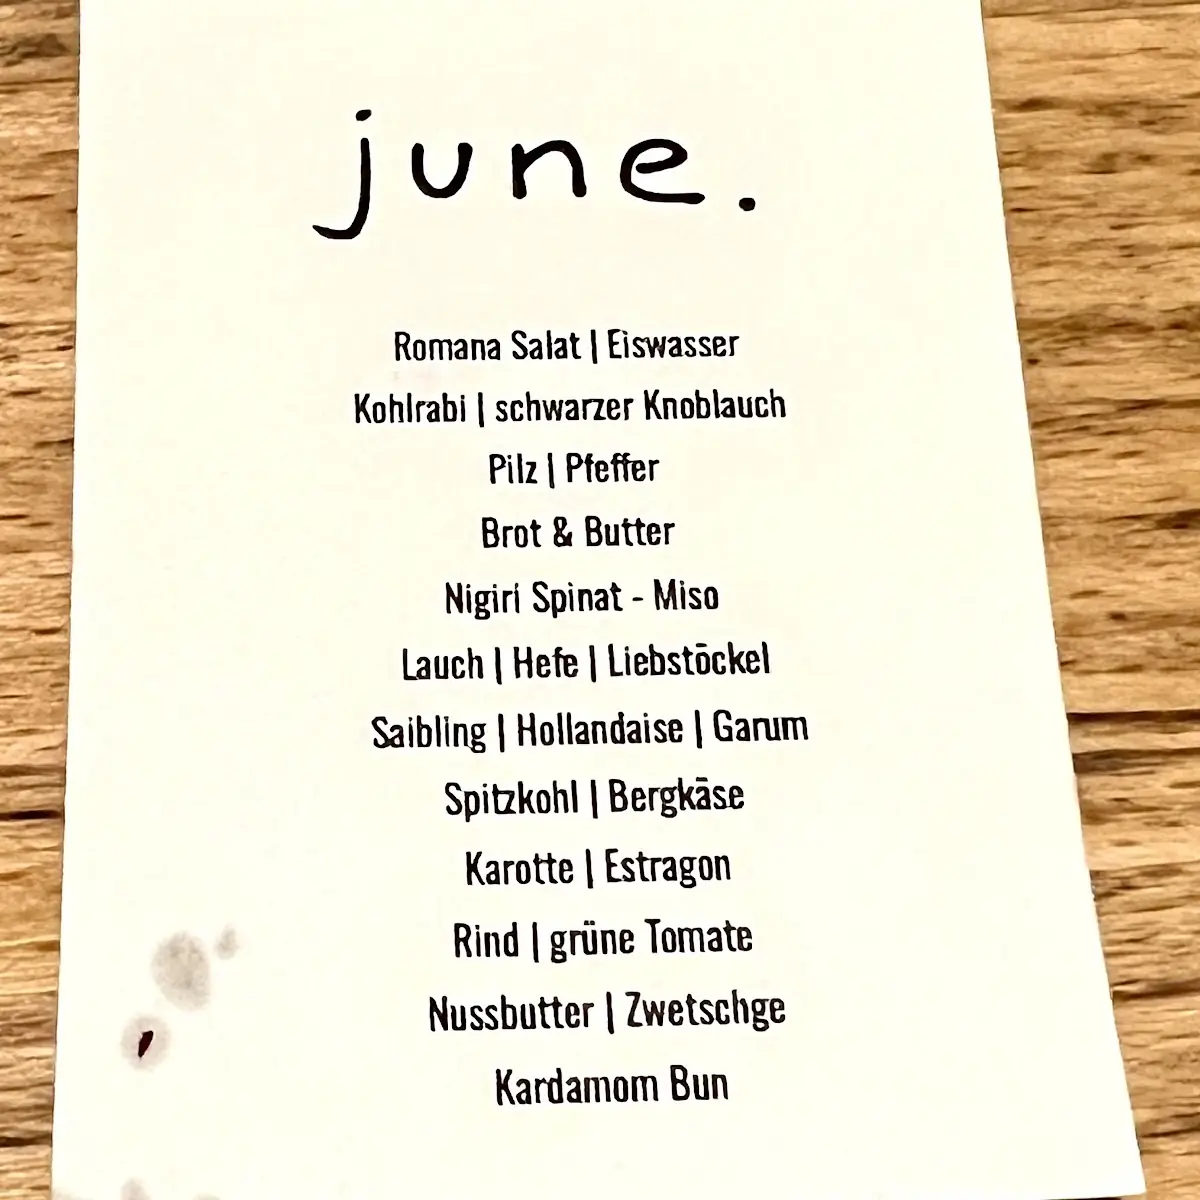 june.
Romana Salat | Eiswasser
Kohlrabi | schwarzer Knoblauch
Pilz | Pfeffer
Brot & Butter
Nigiri Spinat - Miso
Lauch | Hefe | Liebstöckel
Saibling | Hollandaise | Garum
Spitzkohl | Bergkäse
Karotte | Estragon
Rind | grüne Tomate
Nussbutter | Zwetschge
Kardamom Bun